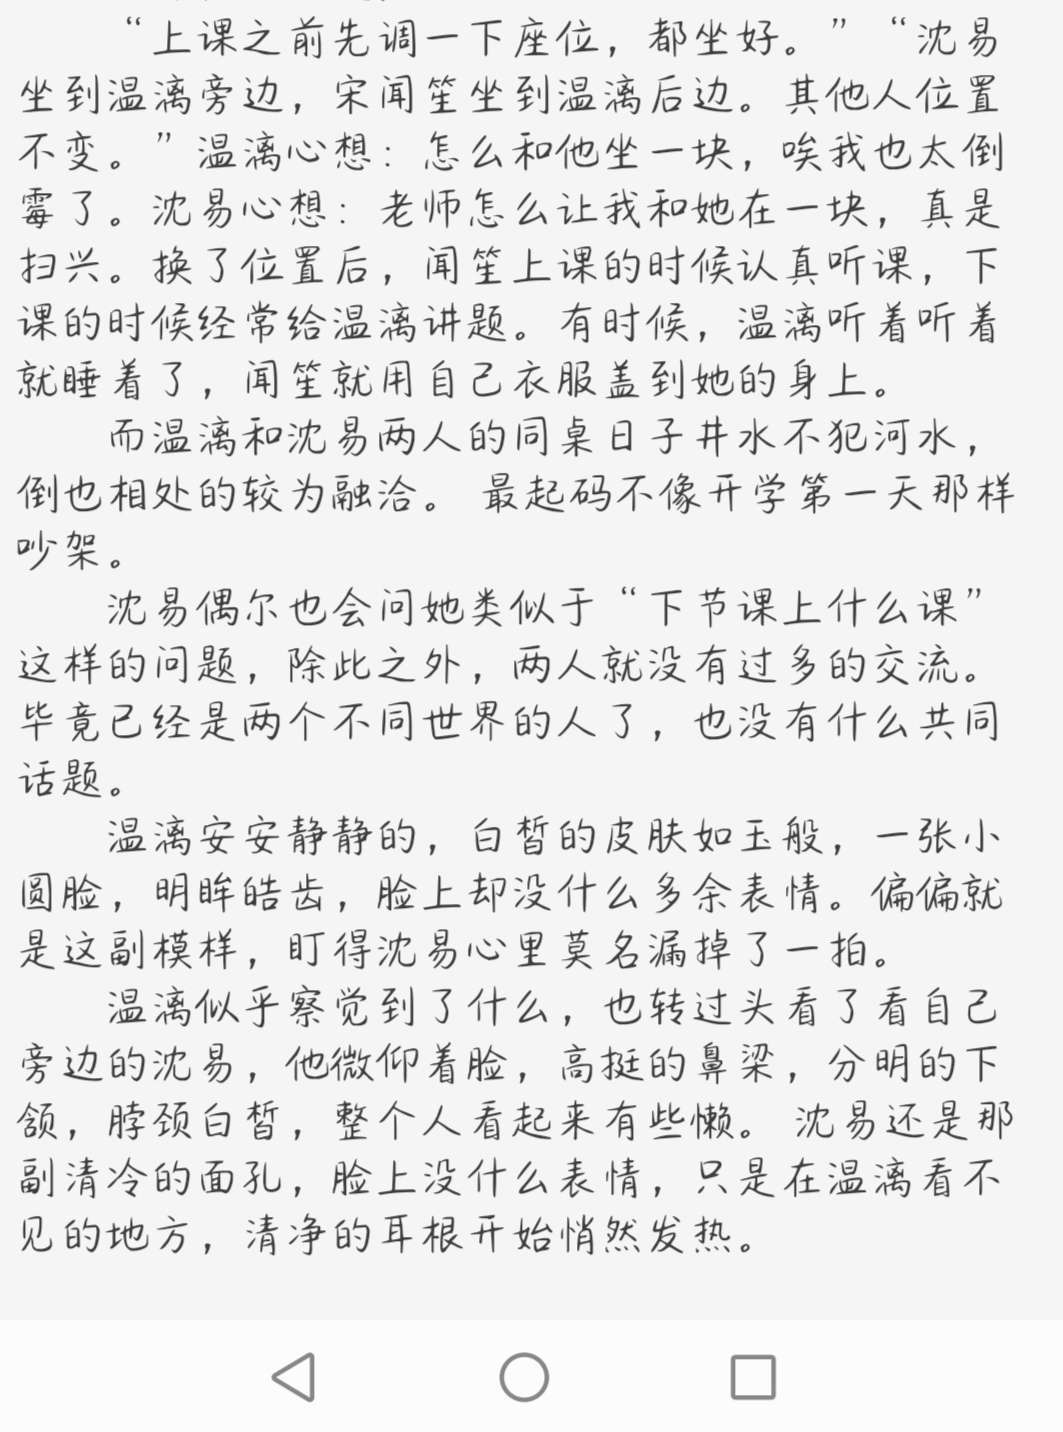 “上课之前先调一下座位，都坐好。”“沈易
坐到温漓旁边，宋闻笙坐到温漓后边。其他人位置
不变。”温漓心想：怎么和他坐一块，唉我也太倒
霉了。沈易心想：老师怎么让我和她在一块，真是
扫兴。换了位置后，闻笙上课的时候认真听课，下
课的时候经常给温漓讲题。有时候，温漓听着听着
就睡着了，闻笙就用自己衣服盖到她的身上。
而温漓和沈易两人的同桌日子井水不犯河水，
倒也相处的较为融洽。 最起码不像开学第一天那样
吵架。
沈易偶尔也会问她类似于“下节课上什么课”
这样的问题，除此之外，两人就没有过多的交流。
毕竟已经是两个不同世界的人了，也没有什么共同
话题。
温漓安安静静的，白皙的皮肤如玉般，一张小
圆脸，明眸皓齿，脸上却没什么多余表情。偏偏就
是这副模样，盯得沈易心里莫名漏掉了一拍。
温漓似乎察觉到了什么，也转过头看了看自己
旁边的沈易，他微仰着脸，高挺的鼻梁，分明的下
颌，脖颈白皙，整个人看起来有些懒。 沈易还是那
副清冷的面孔，脸上没什么表情，只是在温漓看不
见的地方，清净的耳根开始悄然发热。